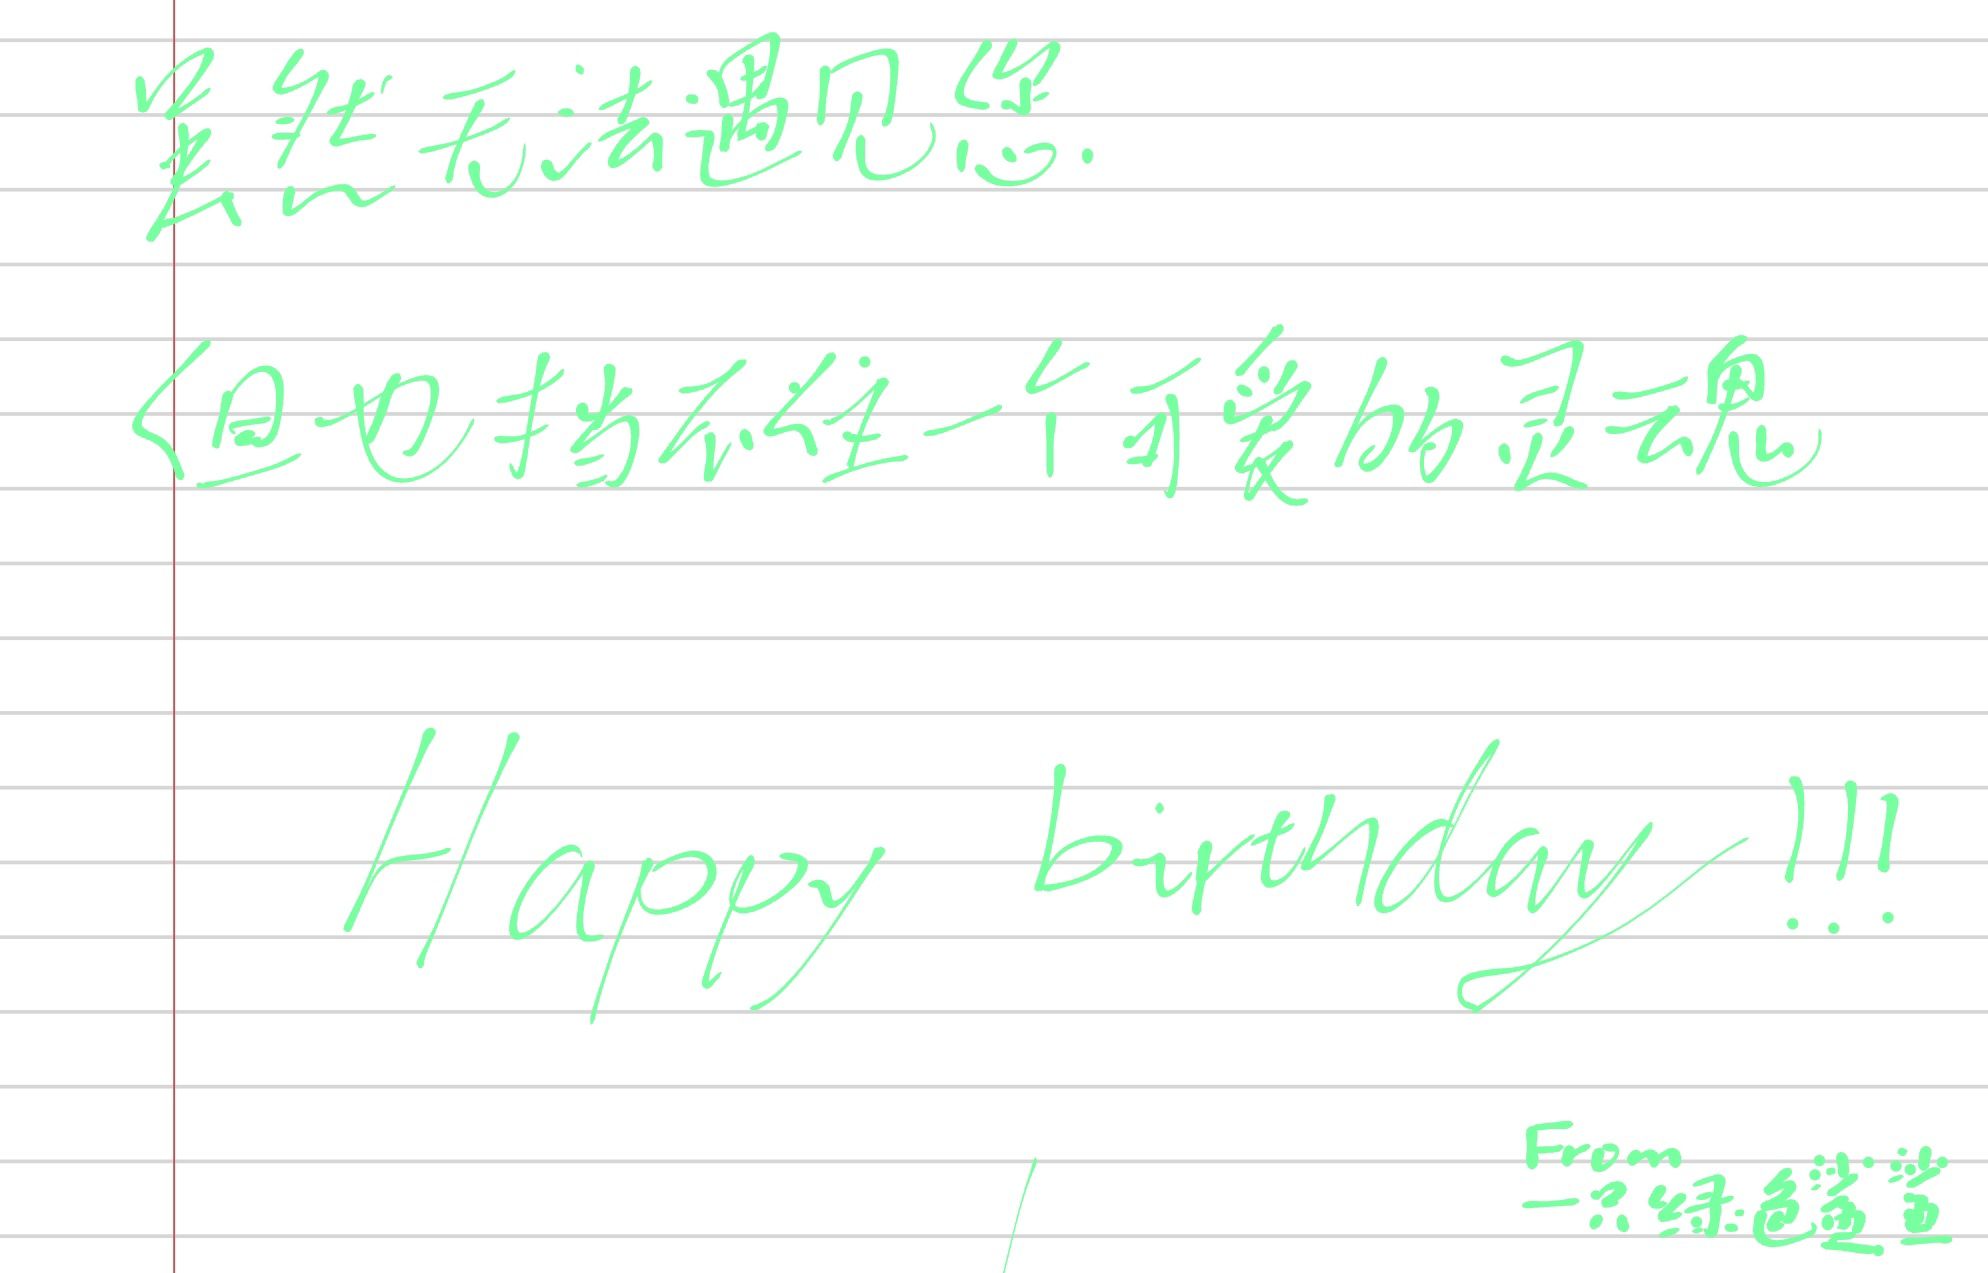 虽然无法遇见您.
但也挡不住一个可爱的灵魂
Happy birthday!!!
From
一只绿色鲨鲨